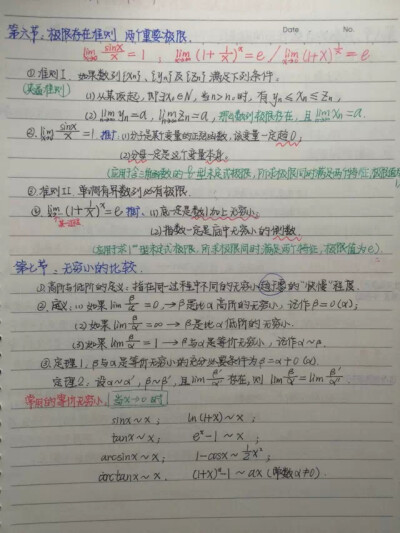 Date
No.
第六节,极限存在准则 两个重要极限.
lim x→0 sinx/x = 1 , lim x→∞ (1+1/x)^x = e / lim x→0 (1+x)^(1/x) = e
①准则I. 如果数列{Xn}、{Yn}及{Zn}满足下列条件。
(夹逼准则) (1)从某项起,即∃n₀∈N,当n>n₀时,有 yn≤Xn≤Zn ,
(2) lim n→∞ yn=a, lim n→∞ Zn=a, 则数列极限存在,且 lim n→∞ Xn=a.
②. lim x→0 sinx/x = 1. 推广、(1)分子是某个变量的正弦函数,该变量一定趋0;
(2)分母一定是这个变量本身。
③准则II 单调有界数列必有极限.
④. lim x→∞ (1+1/x)^x = e. 推广、(1)底一定是数1加上无穷小。
(2)指数一定是底中无穷小的倒数.
(应用于求1^∞型未定式极限,所求极限同时满足两个特征,极限值为e).
第七节、无穷小的比较.
①高阶与低阶的定义:指在同一过程中不同的无穷小趋于零的"快慢"程度.
②定义:(1)如果lim β/α = 0,→β是比α高阶的无穷小,记作β=o(α);
(2)如果lim β/α = ∞ → β是比α低阶的无穷小.
(3).如果lim β/α = 1 → β与α是等价无穷小,记作α~β.
③定理1,β与α是等价无穷小的充分必要条件为β=α+o(α).
定理2,设α~α′,β~β′,且lim β′/α′ 存在,则 lim β/α = lim β′/α′
常用的等价无穷小 当x→0时
sinx~x ; ln(1+x)~x ;
tanx~x ; e^x-1~x ;
arcsinx~x ; 1-cosx~½x² ;
arctanx~x. (1+x)^α-1~αx (常数α≠0).